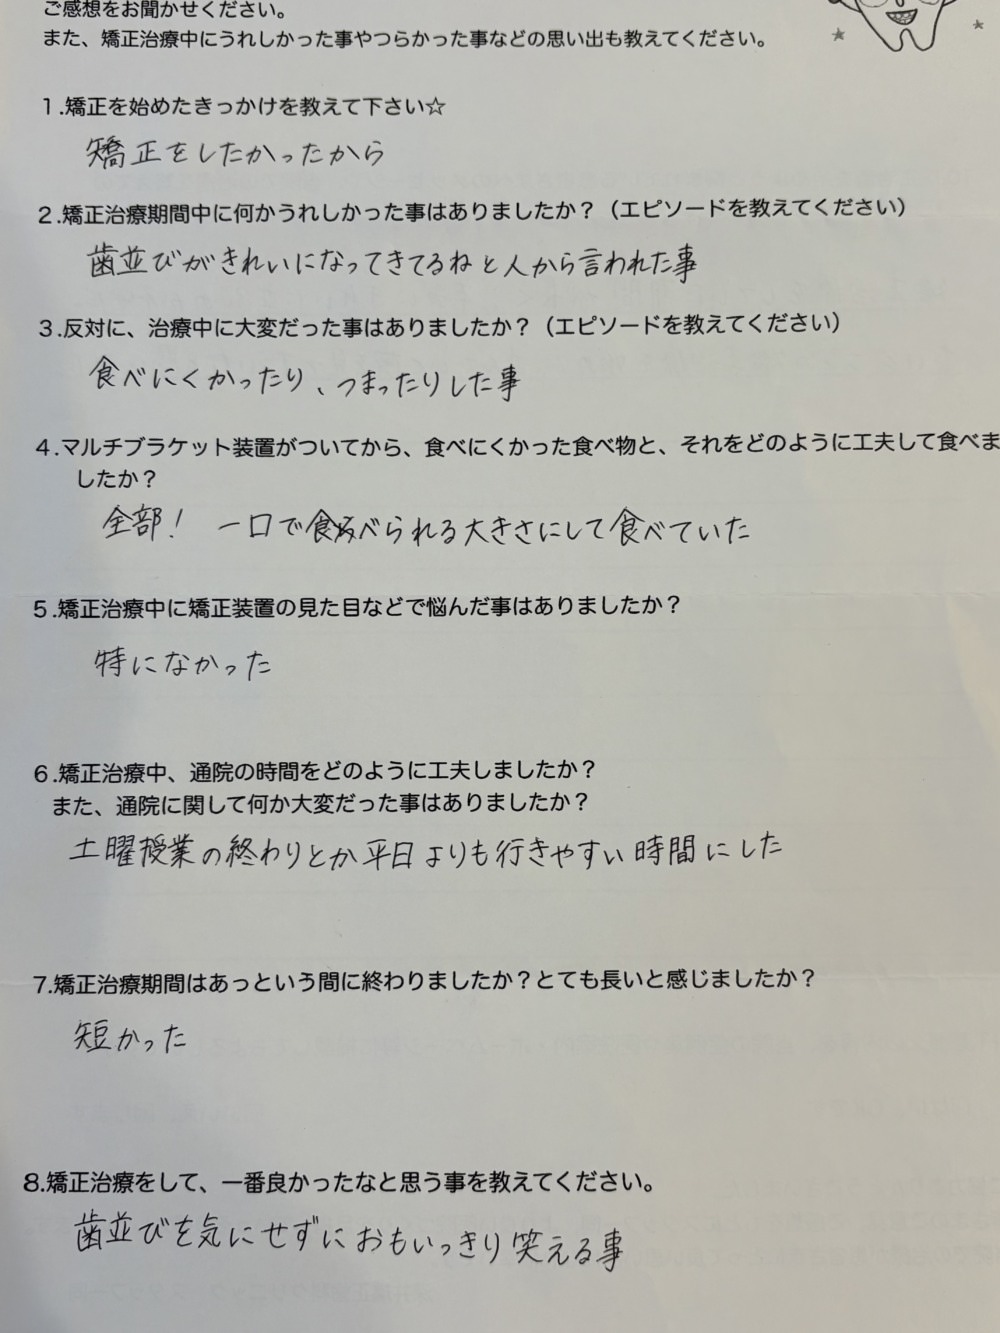 ご感想をお聞かせください。
また、矯正治療中にうれしかった事やつらかった事などの思い出も教えてください。
１.矯正を始めたきっかけを教えて下さい☆
矯正をしたかったから
２.矯正治療期間中に何かうれしかった事はありましたか？（エピソードを教えてください）
歯並びがきれいになってきてるねと人から言われた事
３.反対に、治療中に大変だった事はありましたか？（エピソードを教えてください）
食べにくかったり、つまったりした事
４.マルチブラケット装置がついてから、食べにくかった食べ物と、それをどのように工夫して食べま
したか？
全部！ 一口で食べられる大きさにして食べていた
５.矯正治療中に矯正装置の見た目などで悩んだ事はありましたか？
特になかった
６.矯正治療中、通院の時間をどのように工夫しましたか？
また、通院に関して何か大変だった事はありましたか？
土曜授業の終わりとか平日よりも行きやすい時間にした
7.矯正治療期間はあっという間に終わりましたか？とても長いと感じましたか？
短かった
8.矯正治療をして、一番良かったなと思う事を教えてください。
歯並びを気にせずにおもいっきり笑える事